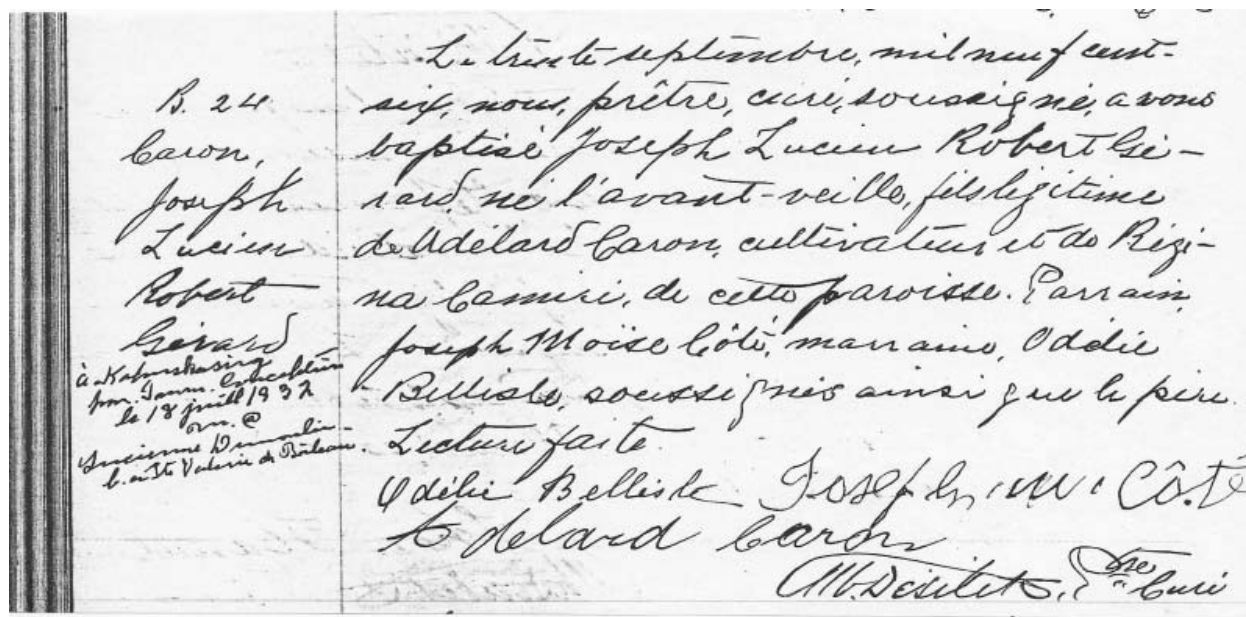 B. 24
Caron,
Joseph
Lucien
Robert
Gérard
à Kapuskasing
par. Imm. Conception
le 18 juill 1932
m. @
Lucienne Dumoulin
b. à Ste Valérie de Boileau.
Le trente septembre, mil neuf cent-
six, nous, prêtre, curé, soussigné, avons
baptisé Joseph Lucien Robert Gé-
rard né l'avant-veille, fils légitime
de Adélard Caron, cultivateur et de Régi-
na Camiré, de cette paroisse. Parrain,
Joseph Moïse Côté, marraine, Odélie
Bellisle, soussignés ainsi que le père.
Lecture faite.
Odélie Bellisle Joseph M. Côté
Adelard Caron
Alb. Désilets, Ptre Curé